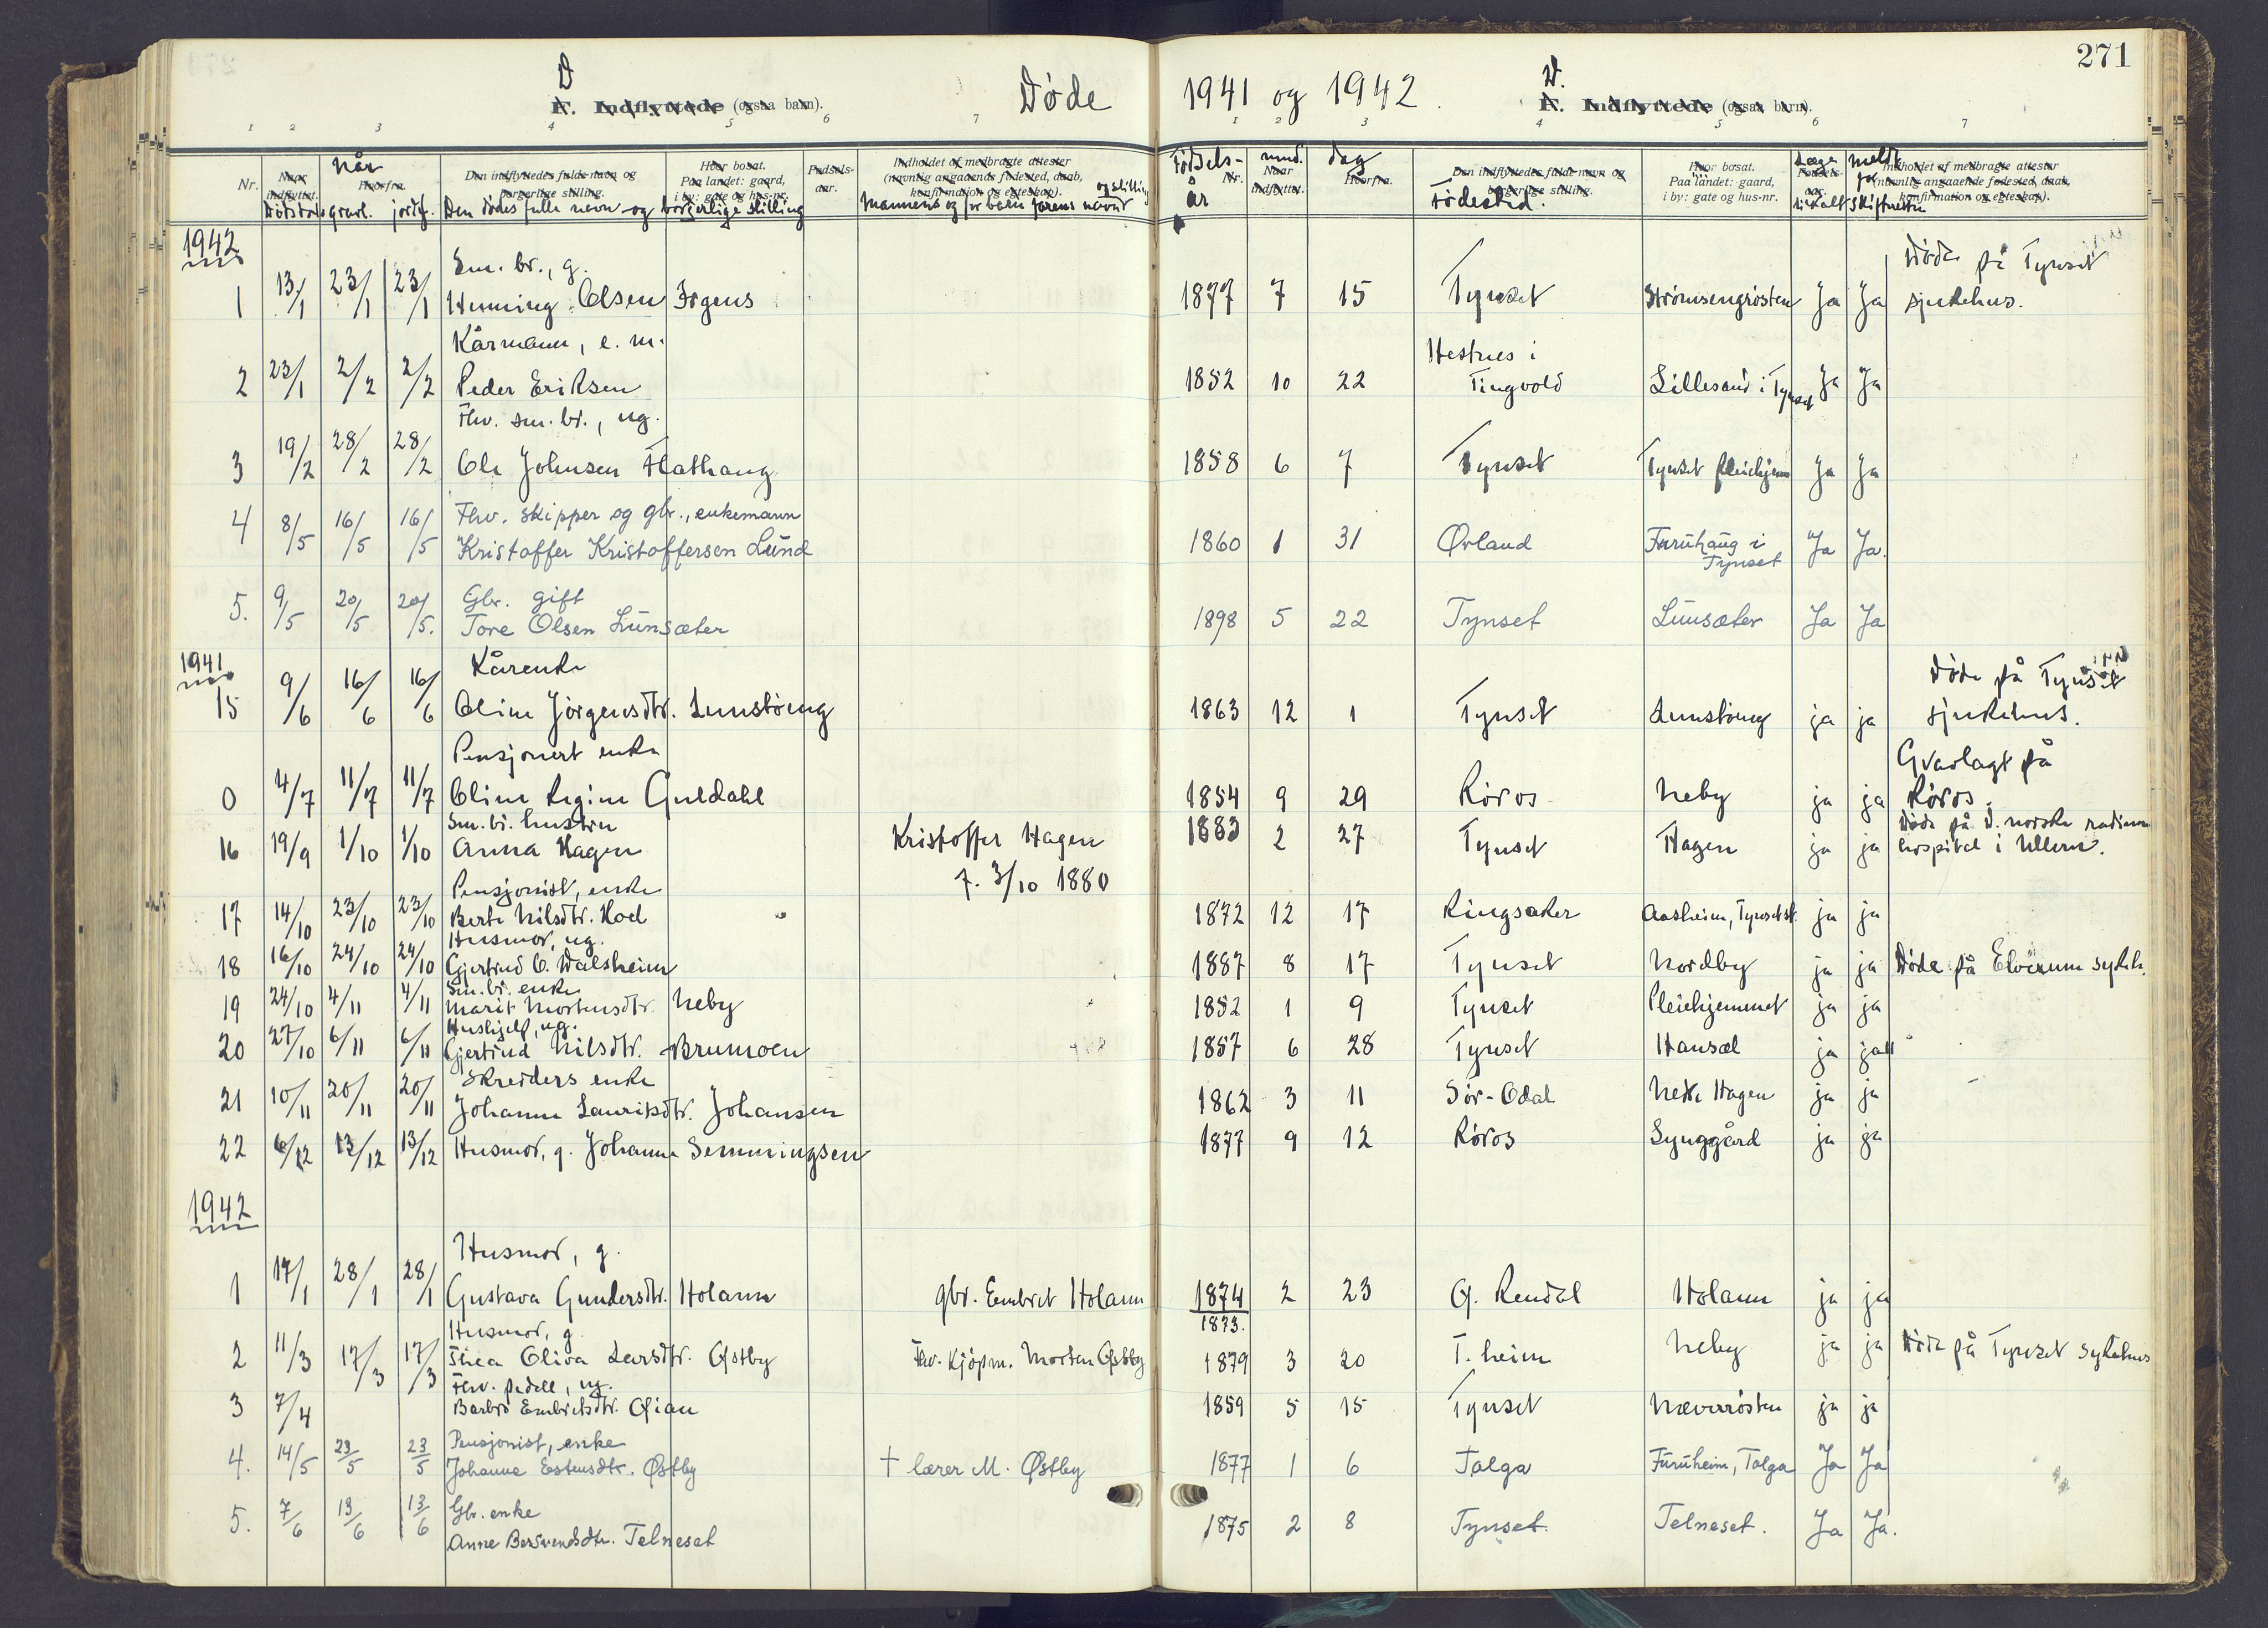 271
D
F. Indflyttede (ogsaa barn).
Døde 1941 og 1942.
D.
F. Indflyttede (ogsaa barn).
1 2 3 4 5 6 7
1 2 3 4 5 6 7
Nr.
Naar indflyttet.
Dødsdag
Når
Hvorfra.
gravl. jordf.
Den indflyttedes fulde navn og borgerlige stilling.
Den dødes fulle navn og borgerlige stilling
Hvor bosat.
Paa landet: gaard,
i by: gate og hus-nr.
Fødsels-aar.
Indholdet af medbragte attester
(navnlig angaaende fødested, daab,
konfirmation og egteskap).
Mannens og for barn farens navn og stilling
Fødsels-år
Nr.
mnd.
Naar indflyttet.
dag
Hvorfra.
Den indflyttedes fulde navn og borgerlige stilling.
Fødested.
Hvor bosat.
Paa landet: gaard,
i by: gate og hus-nr.
Fødsels-aar.
Indholdet af medbragte attester
(navnlig angaaende fødested, daab,
konfirmation og egteskap).
skifteretten
1942
Sm. br., g.
1 13/1 23/1 23/1 Henning Olsen Brgens 1877 7 15 Tynset Strømsengrøsten Ja Ja Døde på Tynset sjukehus.
Kårmann, e. m.
2 23/1 2/2 2/2 Peder Eriksen 1852 10 22 Hestnes i Tingvold Lillesand i Tynset Ja Ja
Fhv. sm. br., ug.
3 19/2 28/2 28/2 Ole Johnsen Flathaug 1858 6 7 Tynset Tynset pleiehjem Ja Ja
Fhv. skipper og gbr., enkemann
4 8/5 16/5 16/5 Kristoffer Kristoffersen Lund 1860 1 31 Ørland Furuhaug i Tynset Ja Ja.
Gbr. gift
5. 9/5 20/5 20/5. Tore Olsen Lunsæter 1898 5 22 Tynset Lunsæter Ja Ja
1941
Kårenke
15 9/6 16/6 16/6 Oline Jørgensdtr. Lunstøeng 1863 12 1 Tynset Lunstøeng ja ja Døde på Tynset sjukehus.
Pensjonert enke
0 4/7 11/7 11/7 Oline Regine Guldahl 1854 9 29 Røros Neby ja ja Gravlagt på Røros.
Sm. br. hustru
16 19/9 1/10 1/10 Anna Hagen Kristoffer Hagen f. 3/10 1880 1883 2 27 Tynset Hagen ja ja Døde på d. norske radium hospital i Ullern.
Pensjonist, enke
17 14/10 23/10 23/10 Berte Nilsdtr. Hoel 1872 12 17 Ringsaker Aasheim, Tynset st. ja ja
Husmor, ug.
18 16/10 24/10 24/10 Gjertrud O. Dalsheim 1887 8 17 Tynset Nordby ja ja Døde på Elverum sykeh.
Sm. br. enke
19 24/10 4/11 4/11 Marit Mortensdtr. Neby 1852 1 9 Tynset Pleiehjemmet ja ja
Hushjelp, ug.
20 27/10 6/11 6/11 Gjertrud Nilsdtr. Brumoen 1857 6 28 Tynset Hansæl ja ja
Skredders enke
21 10/11 20/11 20/11 Johanne Lauritsdtr. Johansen 1862 3 11 Sør-Odal Hagen ja ja
22 6/12 13/12 13/12 Husmor, g. Johanne Semmingsen 1877 9 12 Røros Synggård ja ja
1942
Husmor, g.
1 17/1 28/1 28/1 Gustava Gundersdtr. Holann gbr. Embret Holann 1874 1873. 2 23 Ø. Rendal Holann ja ja
Husmor, g.
2 11/3 17/3 17/3 Thea Oliva Larsdtr. Østby Fhv. kjøpm. Morten Østby 1879 3 20 T. heim Neby ja ja Døde på Tynset sykehus
Fhv. pedell, ug.
3 7/4 Barbro Embretsdtr. Øian 1859 5 15 Tynset Næverrøsten ja ja
Pensjonist, enke
4. 14/5 23/5 23/5 Johanne Estensdtr. Østby † lærer M. Østby 1877 1 6 Tolga Furuheim, Tolga Ja Ja
Gbr. enke
5. 7/6 13/6 13/6 Anne Bersvendsdtr. Telneset 1875 2 8 Tynset. Telneset. Ja Ja.